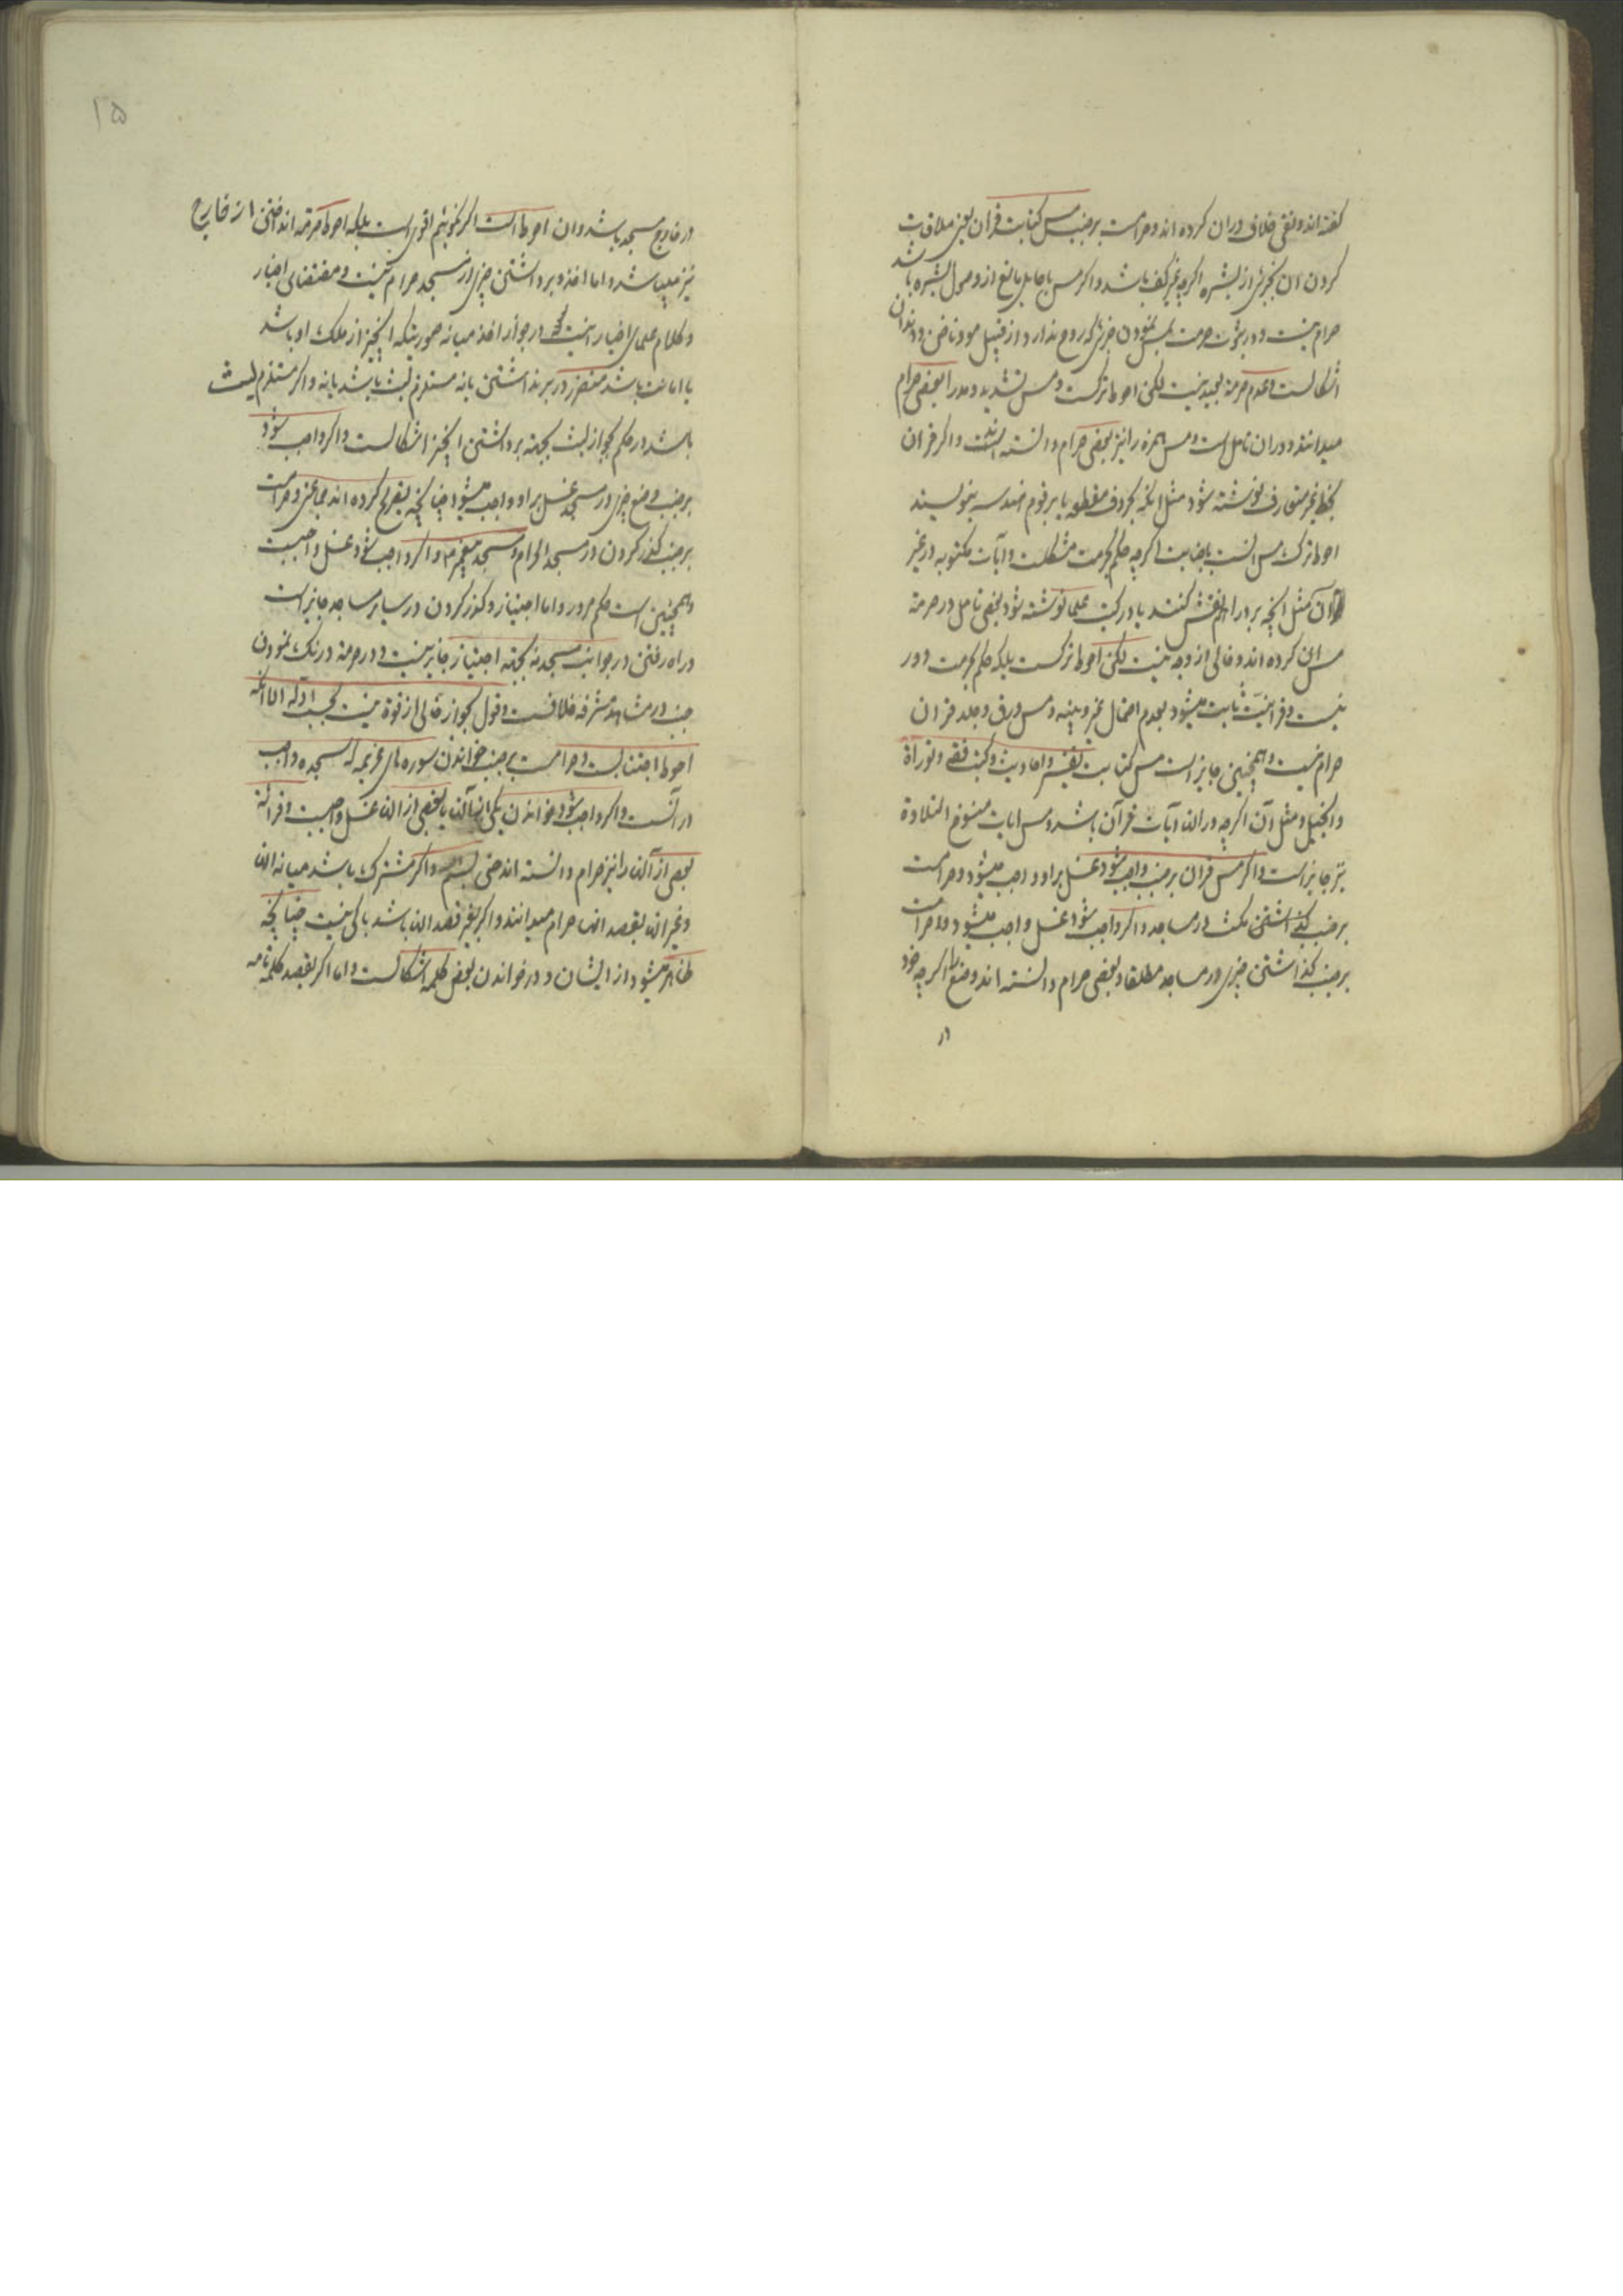 گفته اند و نفی خلاف در ان کرده اند و حرامست بر جنب مس کتابت قران یعنی ملاقات
کردن ان بجزئی از بشره اگرچه بغیر کف باشد و اگر مس با حایل مانع از وصول بشره باشد
حرام نیست و در ثبوت حرمت بمس نمودن جزئی که روح ندارد از قبیل مو و ناخن و دندان
اشکالست و عدم حرمة بعید نیست لکن احوط ترکست و مس تشدید و مد را بعضی حرام
میدانند و در ان تامل است و مس همزه را نیز بعضی حرام دانسته اند و اگر قران
بخط غیر متعارف نوشته شود مثل انکه بحروف مقطعه یا برقوم هندسه بنویسند
احوط ترک مس است با جنابت اگرچه حکم بحرمت مشکلست و آیات مکتوبه در غیر
قرآن مثل انچه بر دراهم نقش کنند یا در کتب علما نوشته شود بعضی تامل در حرمة
مس ان کرده اند و خالی از وجه نیست لکن احوط ترکست بلکه حکم بحرمت دور
نیست و قرانیت ثابت میشود بعدم احتمال غیر و بینه و مس ورق و جلد قران
حرام نیست و همچنین جایز است مس کتابت تفسیر و احادیث و کتب فقه و توراة
و انجیل و مثل آن اگرچه در انها آیات قرآن باشد و مس ایات منسوخ التلاوة
نیز جایز است و اگر مس قران بر جنب واجب شود غسل بر او واجب میشود و حرامست
بر جنب مکث در مساجد و اگر واجب شود غسل واجب میشود و حرامست
بر جنب گذاشتن چیزی در مساجد مطلقا و بعضی حرام دانسته اند وضع را اگرچه خود
در
۱۵
در خارج مسجد باشد و ان احوط است اگر نگوییم اقوی است بلکه احوط حرمة انداختن از خارج
نیز میباشد و اما اخذ و برداشتن چیزی از مسجد حرام نیست و مقتضای اخبار
و کلام علمای اخیار اینست که در جواز اخذ میانه صورتیکه انچیز از ملک او باشد
یا امانت باشد متضرر در برنداشتن یا نه مستلزم لبث باشد یا نه و اگر مستلزم لبث
باشد در حکم بجواز لبث بجهة برداشتن انچیز اشکالست و اگر واجب شود
بر جنب وضع چیزی در مسجد غسل بر او واجب میشود چنانچه تصریح کرده اند جماعتی و حرامست
بر جنب گذر کردن در مسجد الحرام و مسجد پیغمبر و اگر واجب شود غسل واجبست
و همچنین است حکم مرور و اما اجتیاز و گذر کردن در سایر مساجد جایز است
و راه رفتن در جوانب مسجد نه بجهة اجتیاز جایز نیست و در حرمة درنگ نمودن
جنب در مشاهد مشرفه خلافست و قول بجواز خالی از قوة نیست بحسب ادله اما انکه
احوط اجتنابست و حرامست بر جنب خواندن سوره های عزیمه که سجده واجب
در آنست و اگر واجب شود خواندن یکی از آنها یا بعضی از انها غسل واجبست و قرائة
بعض از آنها را نیز حرام دانسته اند حتی بسم و اگر مشترک باشد میانه انها
و غیر انها بقصد انها حرام میدانند و اگر بغیر قصد انها باشد باکی نیست چنانچه
ظاهر میشود از ایشان و در خواندن بعض کلمه اشکالست و اما اگر بقصد کلمه تامه